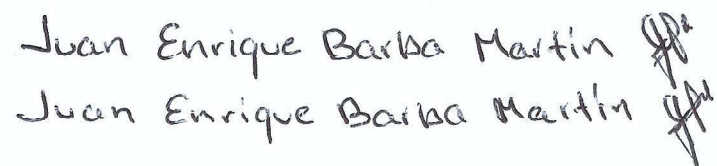 Juan Enrique Barba Martín
Juan Enrique Barba Martín